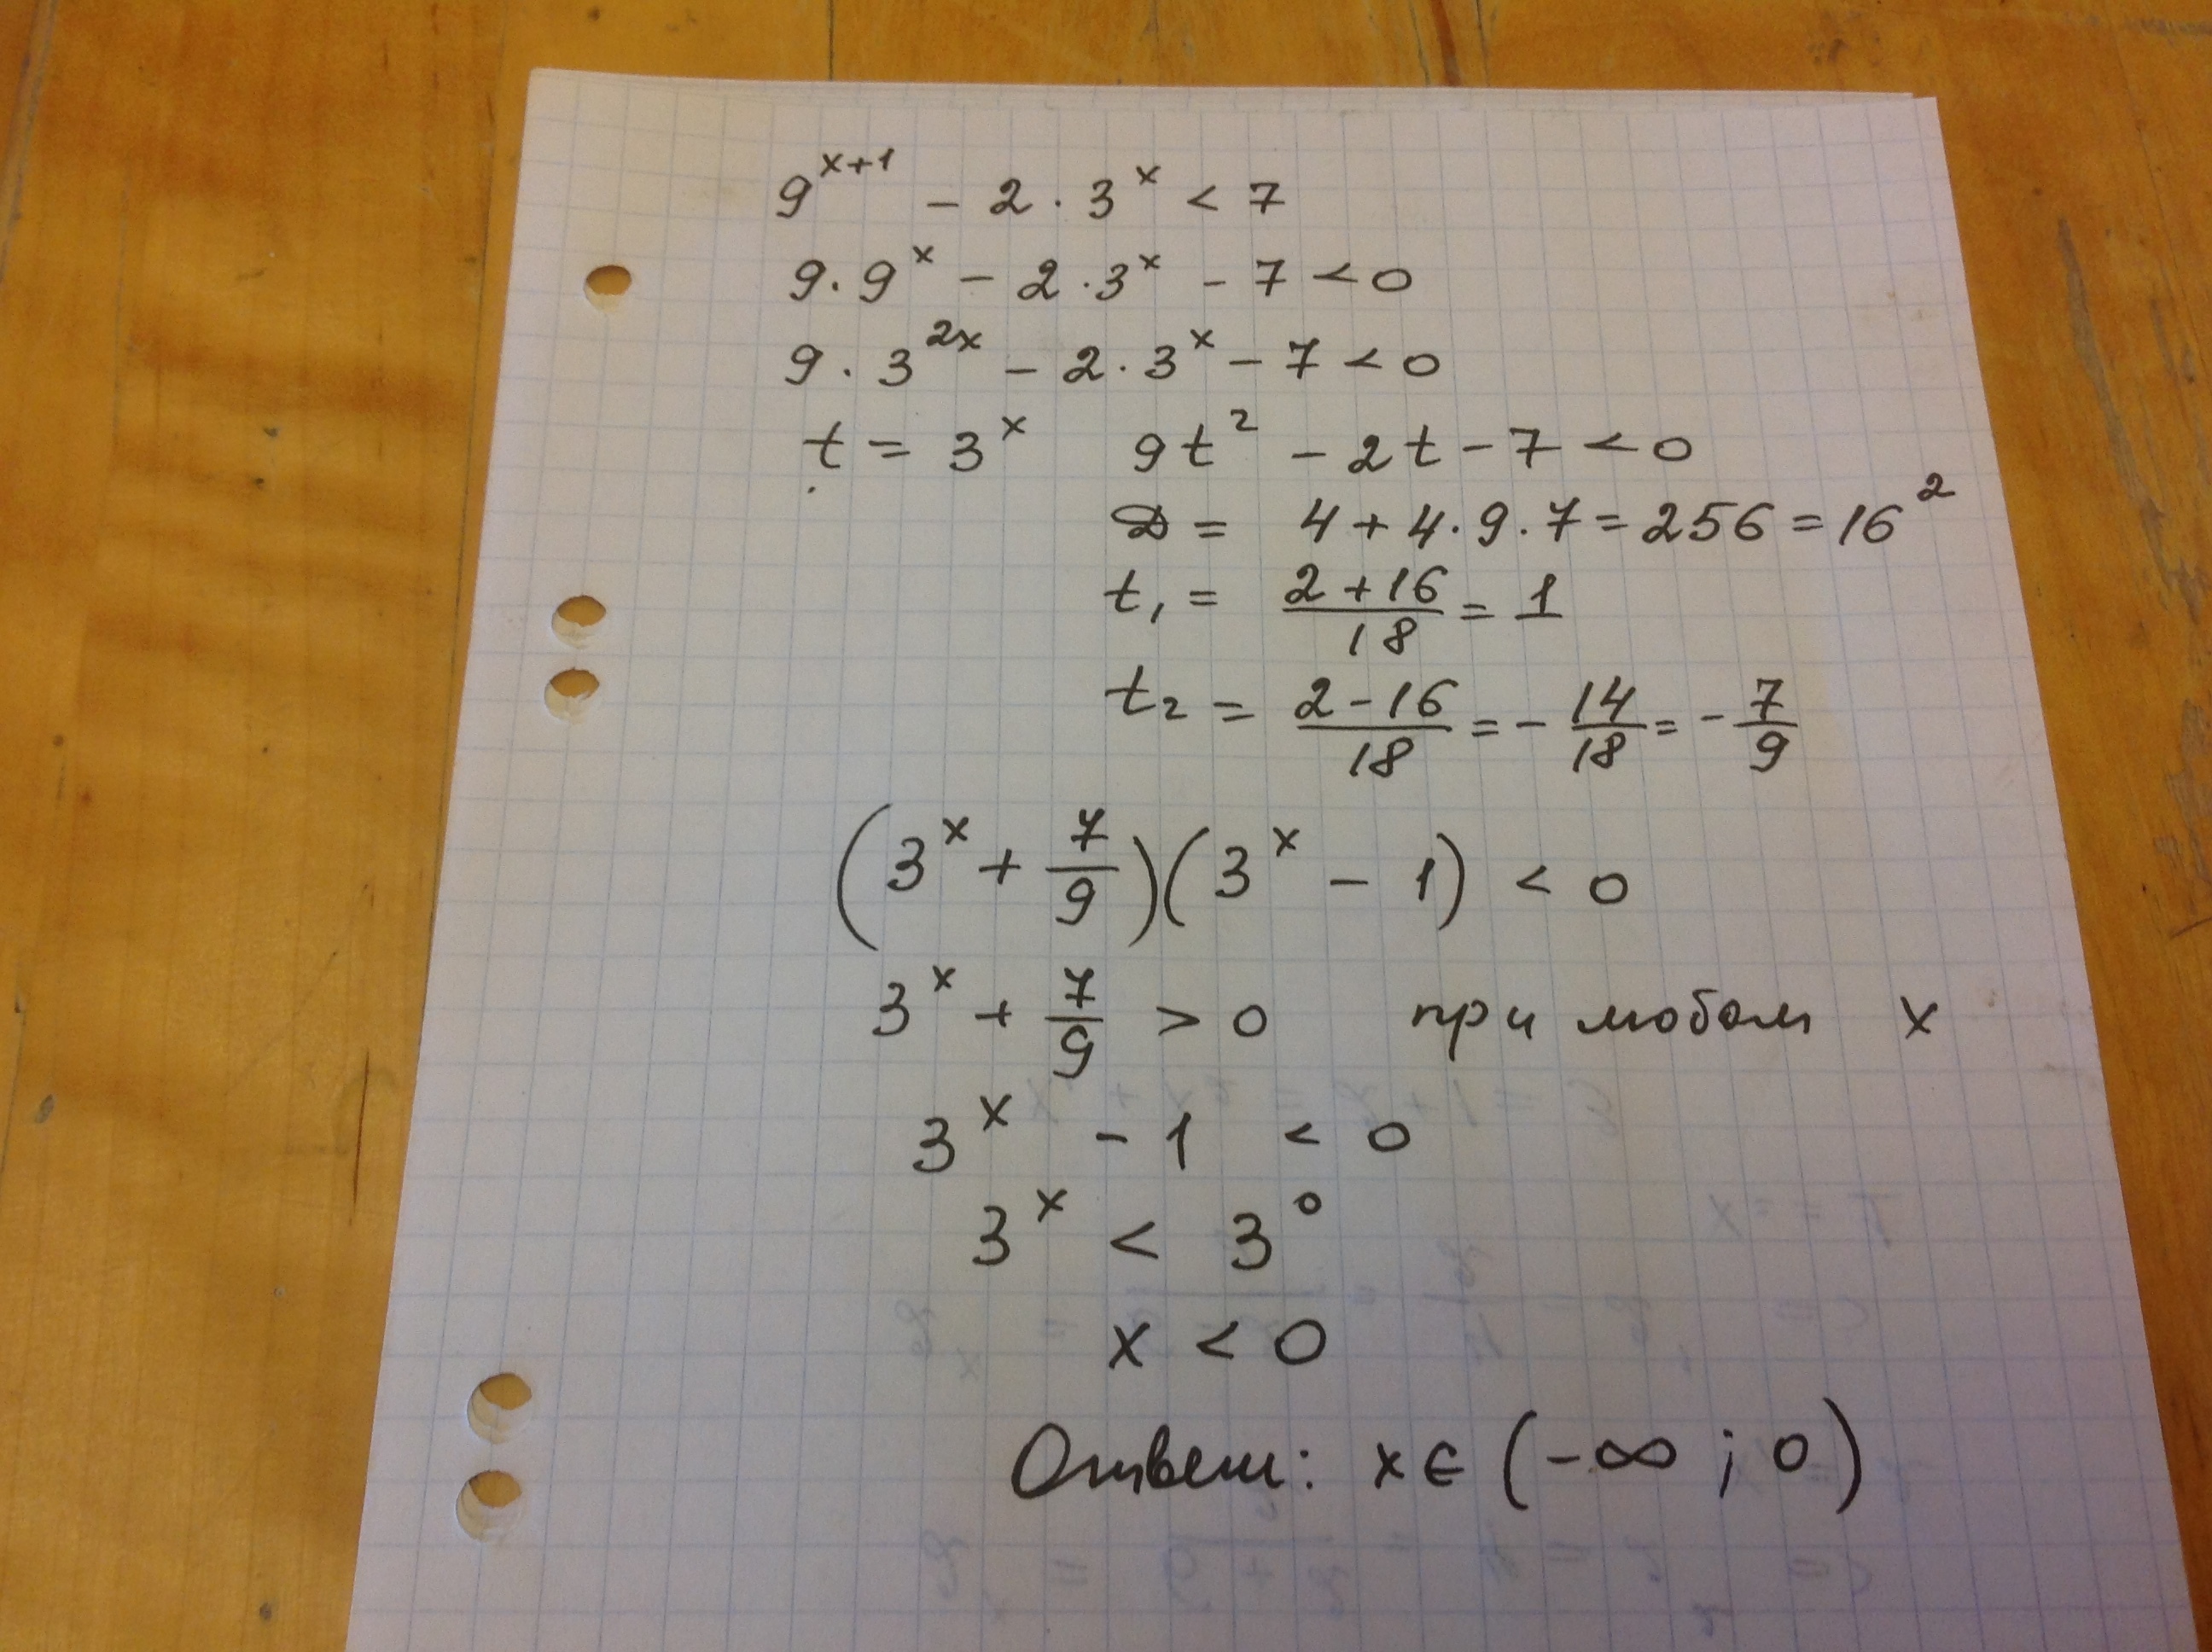 9^{x+1} - 2 · 3^x < 7
9 · 9^x - 2 · 3^x - 7 < 0
9 · 3^{2x} - 2 · 3^x - 7 < 0
t = 3^x 9t^2 - 2t - 7 < 0
D = 4 + 4 · 9 · 7 = 256 = 16^2
t_1 = \frac{2+16}{18} = 1
t_2 = \frac{2-16}{18} = -\frac{14}{18} = -\frac{7}{9}
(3^x + \frac{7}{9})(3^x - 1) < 0
3^x + \frac{7}{9} > 0 при любом x
3^x - 1 < 0
3^x < 3^0
x < 0
Ответ: x ∈ (-∞ ; 0)